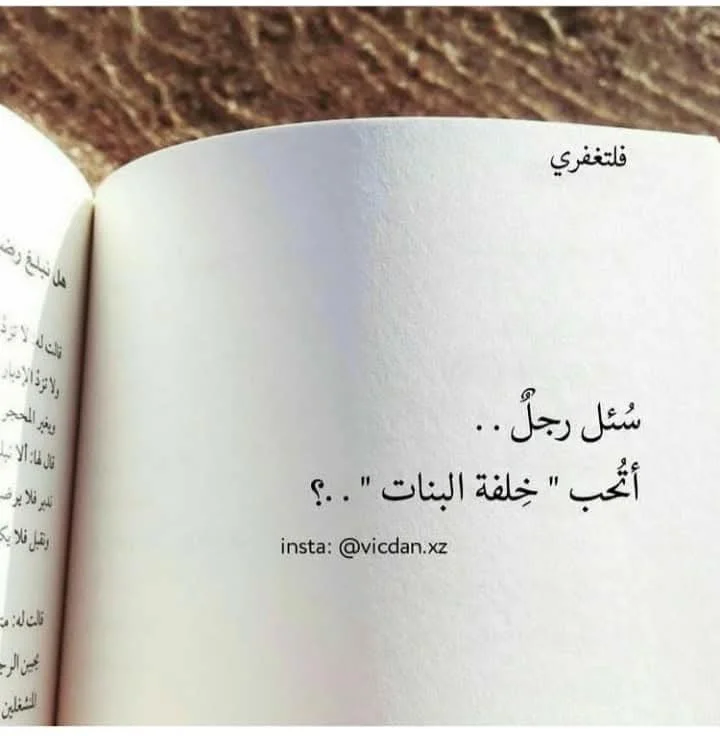 فلتغفري
سُئل رجلٌ . .
أتُحب " خِلفة البنات " . .؟
insta: @vicdan.xz
هل نبلغ
قالت له: لا
ولا تردّ الإدبار
ويغير المحجر
قال لها: ألا
تدبر فلا
وتقبل فلا
قالت له:
يجبن
المنشغلين